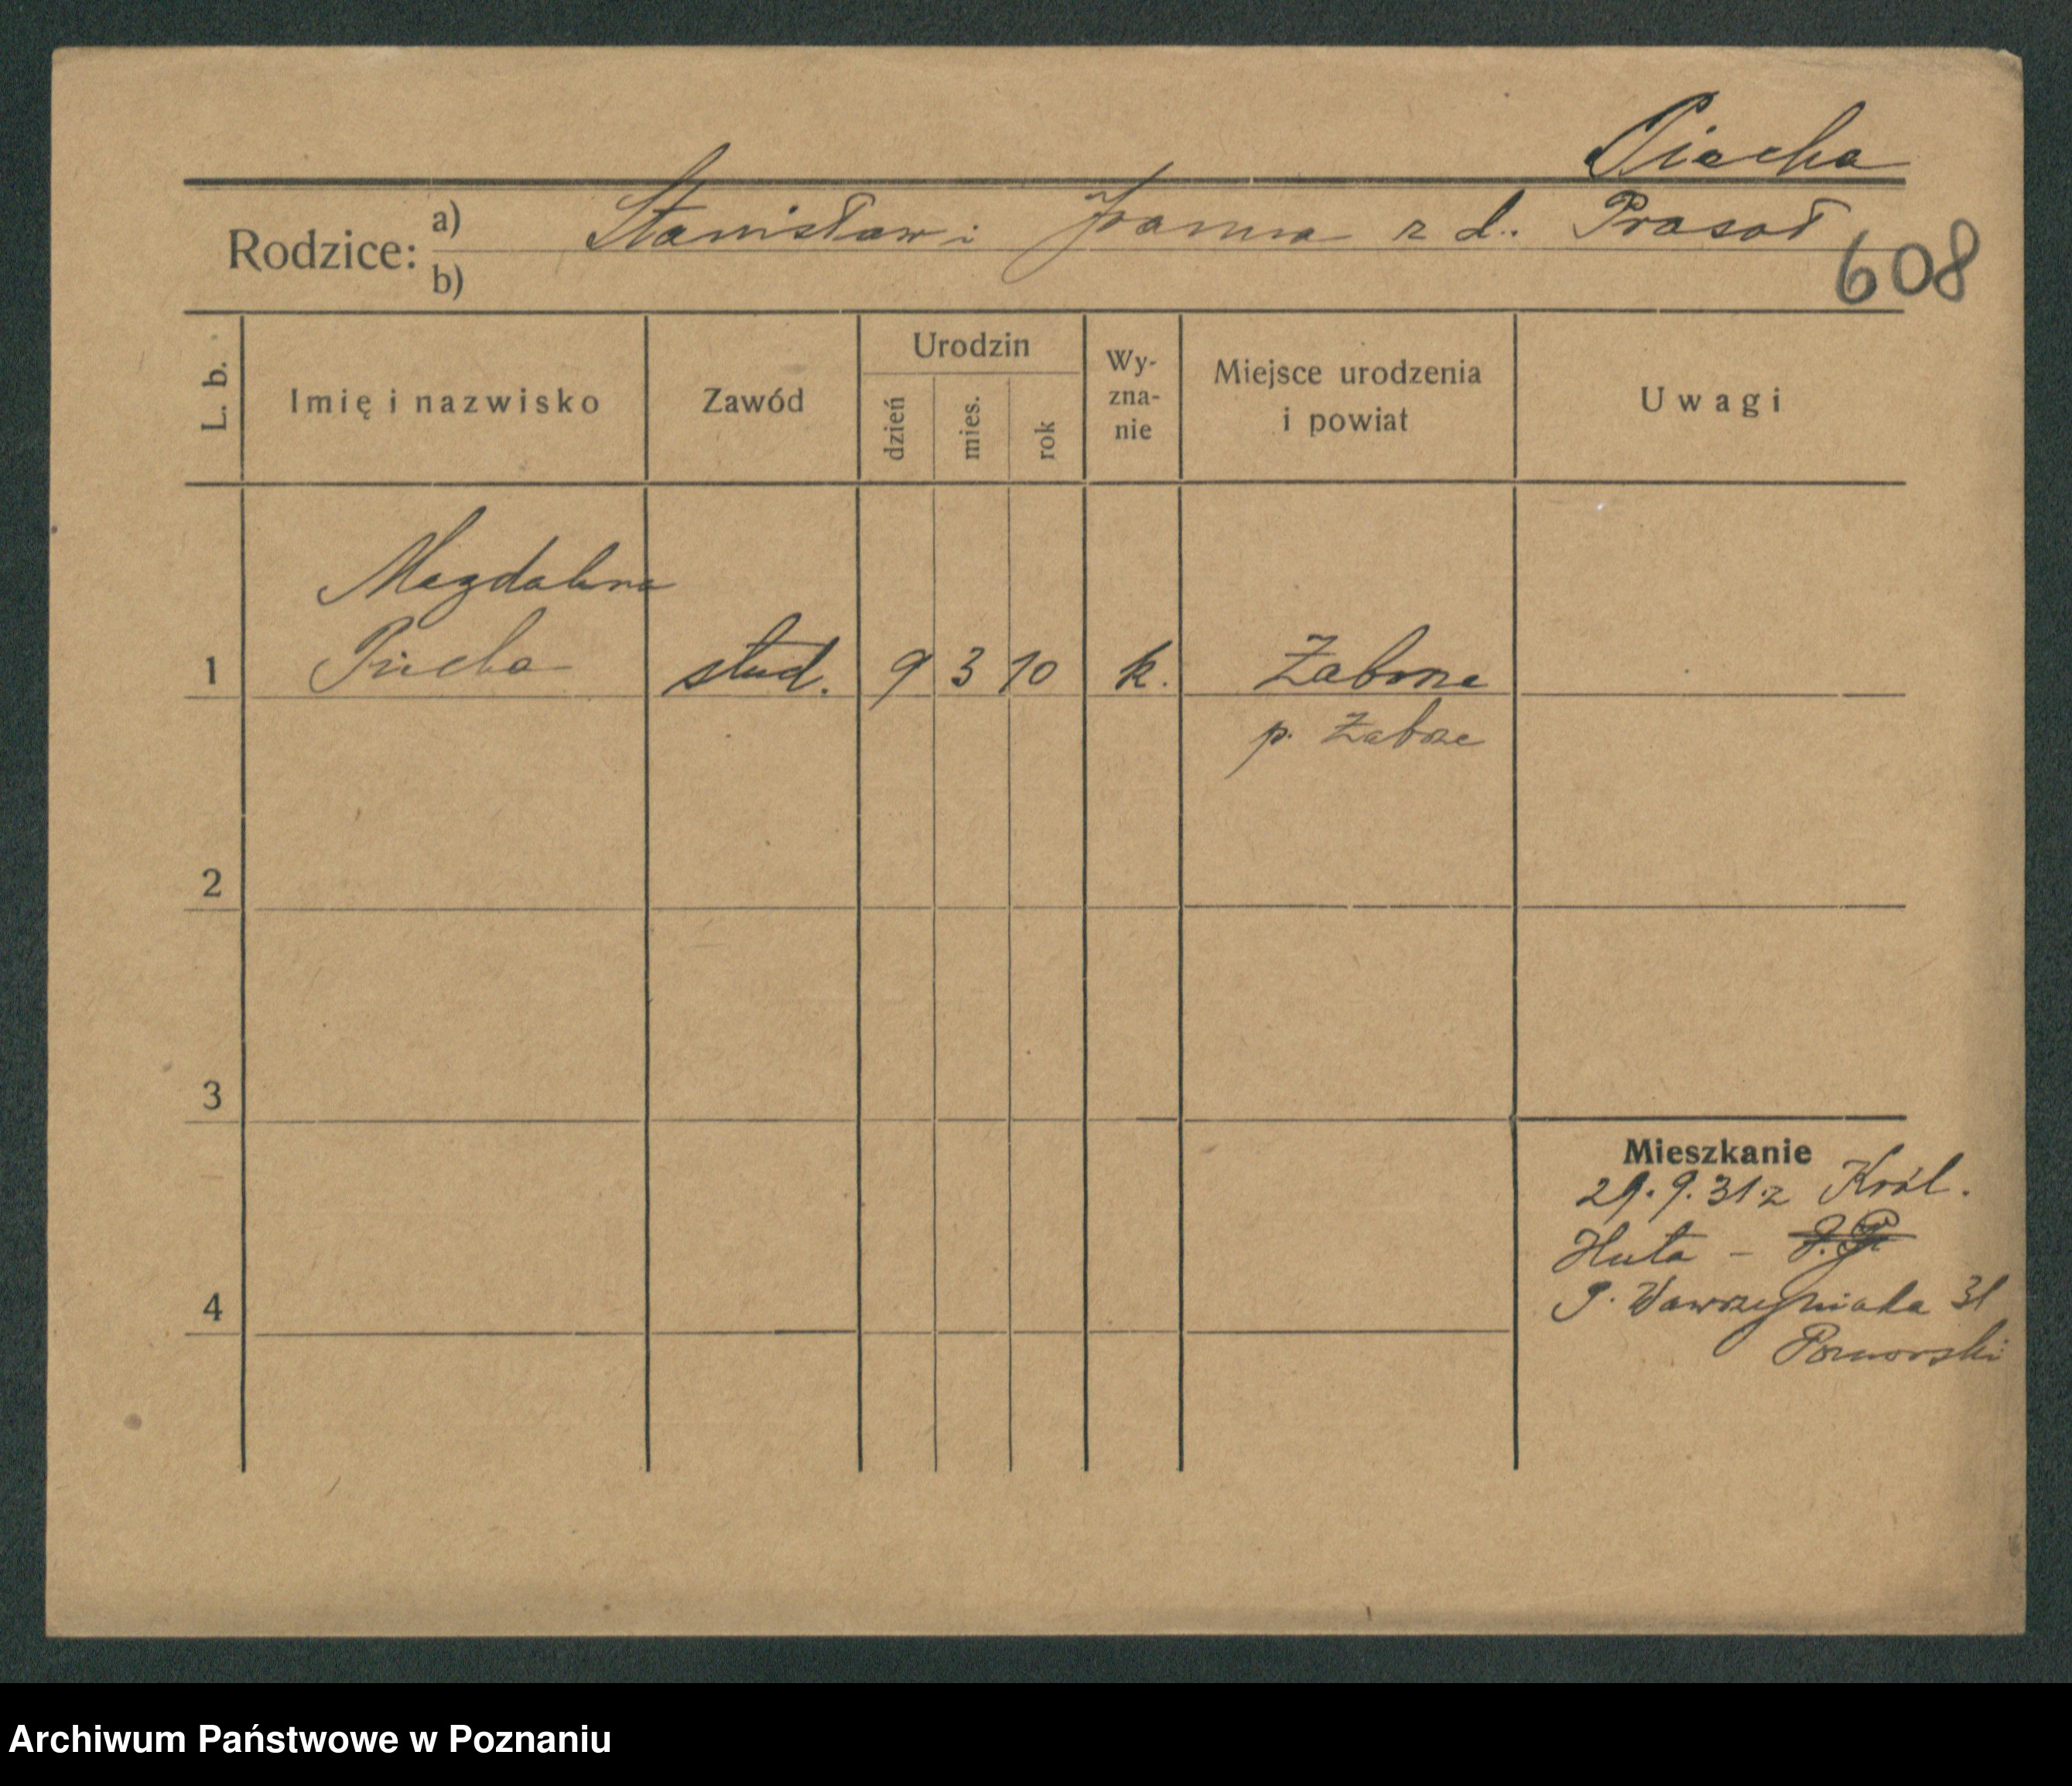 Piecha
Rodzice: a) Stanisław i Joanna z d. Prasoł
b)
608
L. b. Imię i nazwisko Zawód Urodzin dzień mies. rok Wy-zna-nie Miejsce urodzenia i powiat Uwagi
Magdalena
1 Piecha stud. 9 3 10 k. Zaborze
p. Zabrze
2
3
Mieszkanie
29.9.31 z Król.
Huta -
P. Wawrzyniaka 31
4
Pomorski
Archiwum Państwowe w Poznaniu